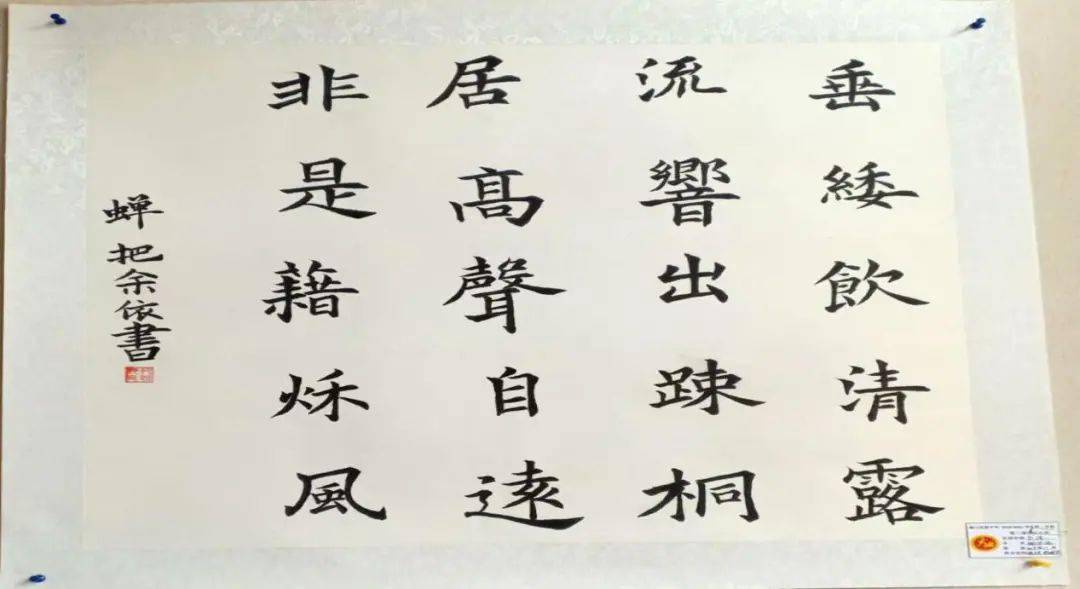 垂緌飲清露
流響出疎桐
居髙聲自遠
非是藉秌風
蝉 把余依書